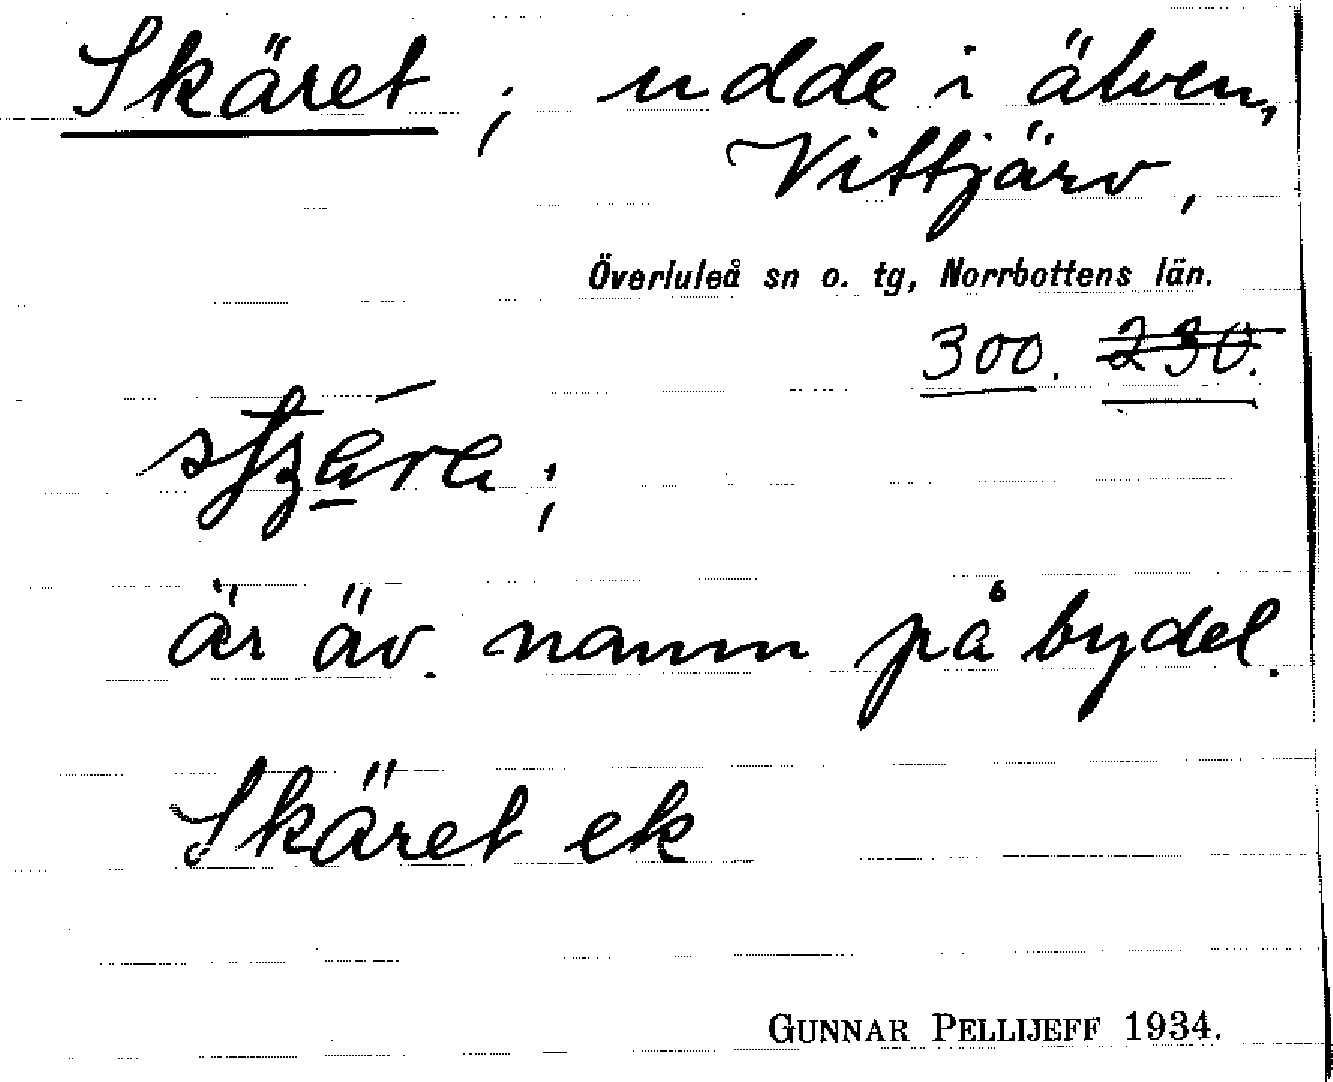 Skäret ; udde i älven,
Vittjärv,
Överluleå sn o. tg, Norrbottens län.
300. 230.
är äv. namn på bydel.
Skäret ek
GUNNAR PELLIJEFF 1934.